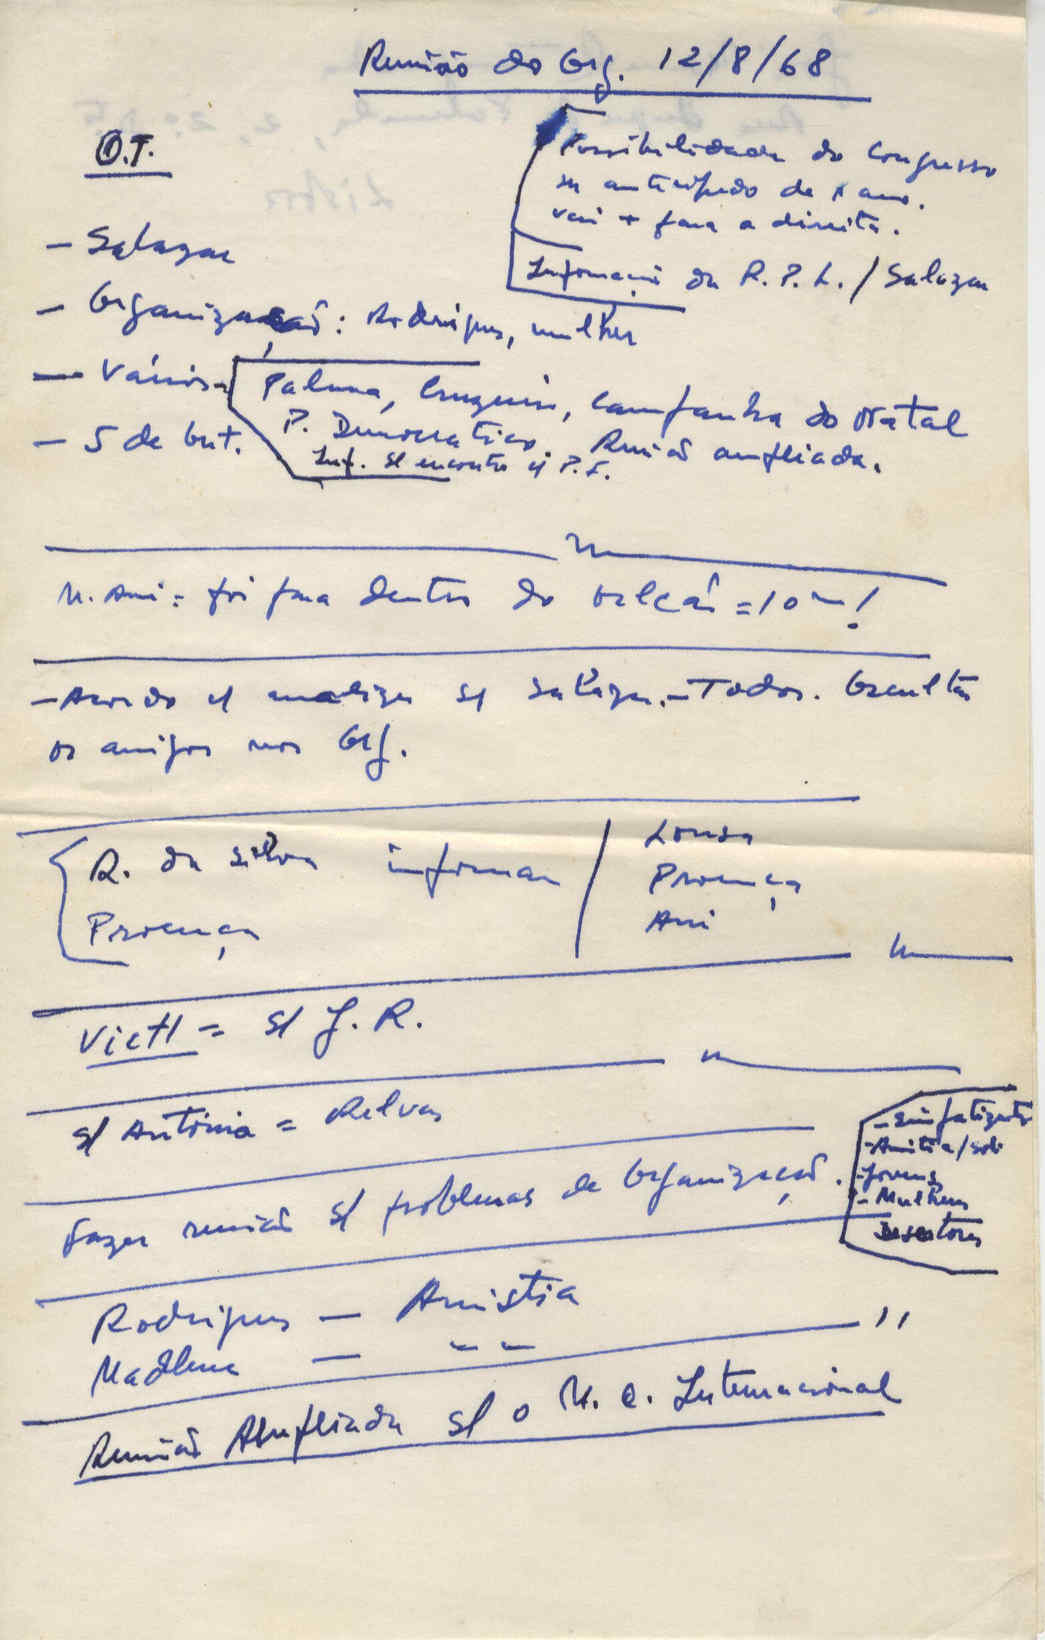 Reunião do Org. 12/8/68
O.T.
Possibilidade do Congresso
ser antecipado de 1 ano.
vai + para a direita.
Informação da R.P.L./Salazar
- Salazar
- Organização: Rodrigues, mulher
- Vários -
Palma, Cruzeiro, Campanha do Natal
P. Democratico. Reunião ampliada.
Inf. s/ encontro c/ P.S.
- 5 de Out.
N. Ani = foi para dentro do =10
- Acordo c/ analize s/ Salazar. - Todos. Escultar
os amigos nos Org.
R. da Silva informar
Proença
Lousa
Proença
Ani
Victl = s/ J.R.
s/ Antónia = Relvas
Fazer reunião s/ problemas de Organização.
- Simpatizantes
- Amitia/soli
- Jovens
- Mulheres
Desertores
Rodrigues - Amistia
Madlena - " "
Reunião Ampliada s/ o M. C. Internacional